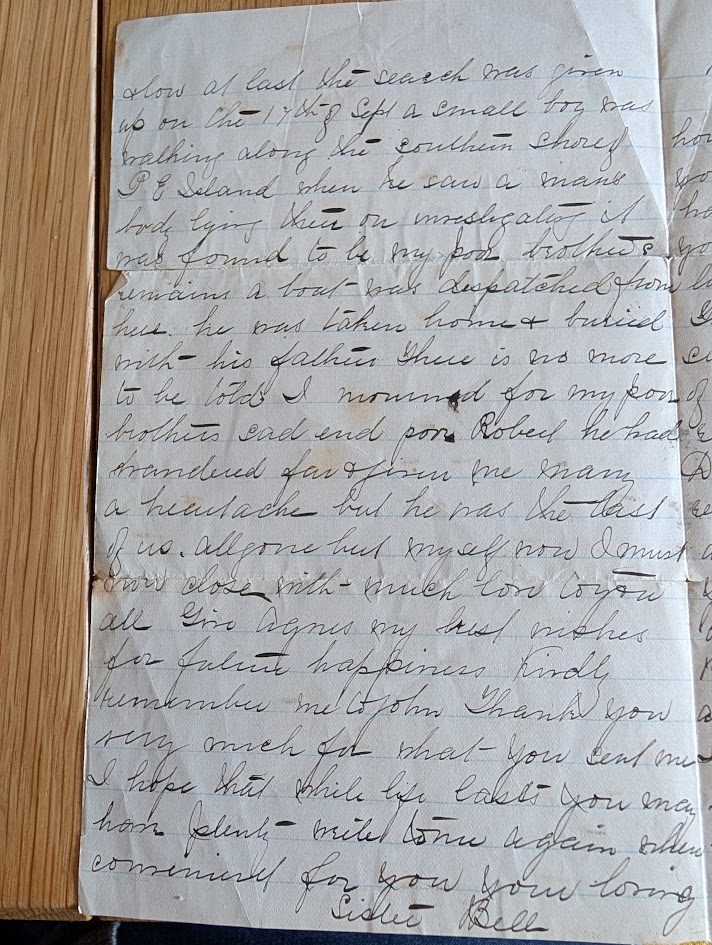 slow at last the search was given
up on the 17th of Sept a small boy was
walking along the southern shore of
P E Island when he saw a mans
body lying there on investigating it
was found to be my poor brothers
remains a boat was despatched from
here. he was taken home & buried
with his father There is no more
to be told I mourned for my poor
brothers sad end poor Robert he had
wandered far & given me many
a heartache but he was the last
of us. all gone but myself now I must
now close with much love to you
all Give Agnes my best wishes
for future happiness Kindly
remember me to John Thank you
very much for what you sent me
I hope that while life lasts you may
have plenty write to me again when
convenient for you your loving
Sister Bell